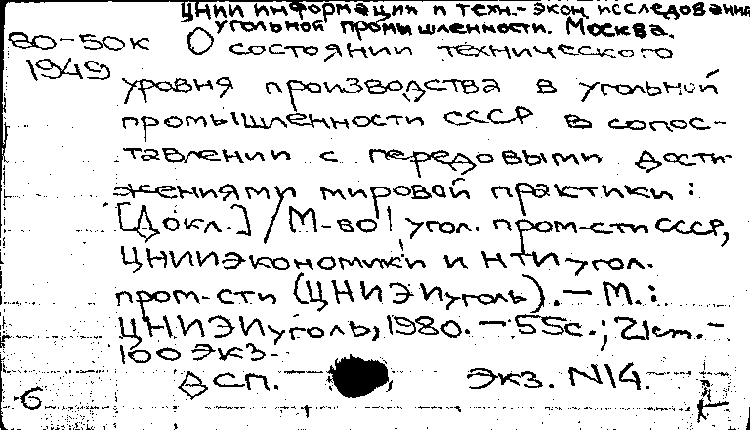 ЦНИИ информации и техн.-экон. исследований
угольной промышленности. Москва.
80-50к О состоянии технического
1949 уровня производства в угольной
промышленности СССР в сопос-
тавлении с передовыми дости
жениями мировой практики:
[Докл.] / М-во угол. пром-сти СССР,
ЦНИИ экономики и НТИ угол.
пром-сти (ЦНИЭИуголь). — М.:
ЦНИЭИуголь, 1980. — 55с.; 21см. —
100 экз.
ДСП. Экз. N14.
6